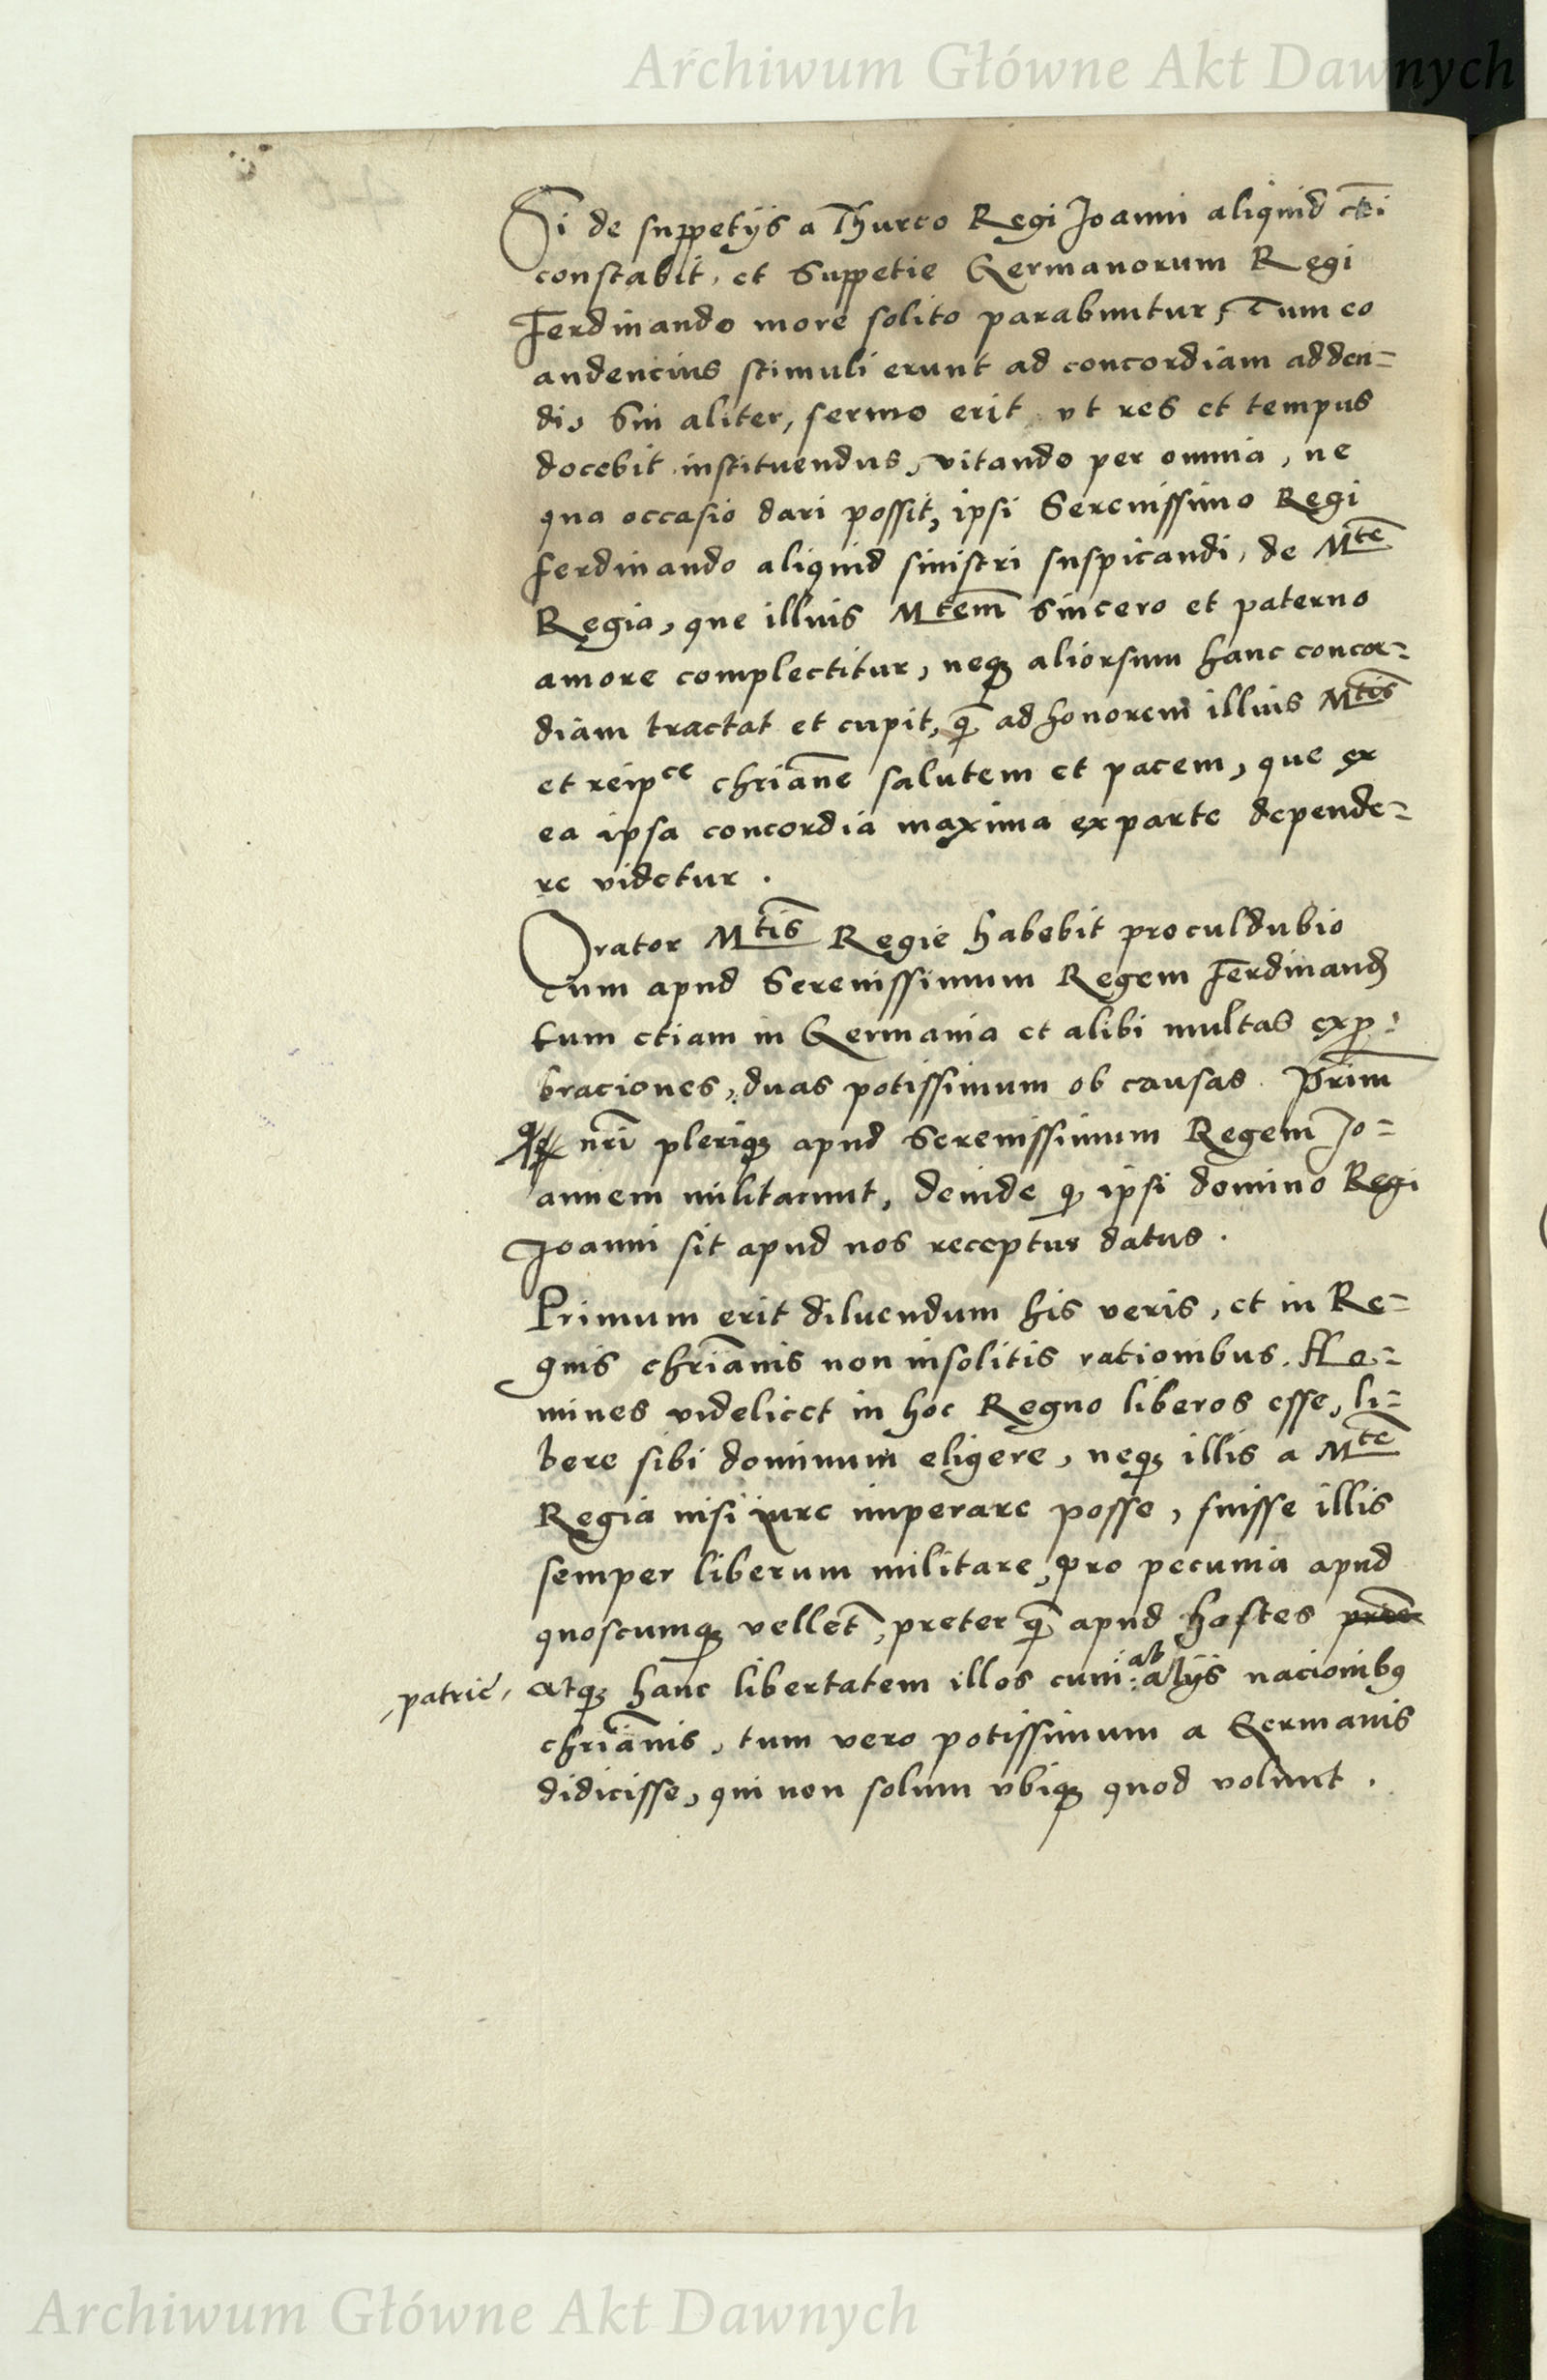 Archiwum Główne Akt Dawnych
Si de suppetijs a Thurco Regi Joanni aliquid cti
constabit, et Suppetie Germanorum Regi
Ferdinando more solito parabuntur, Tum eo
audencius stimuli erunt ad concordiam adden=
di, Sin aliter, sermo erit ut res et tempus
docebit instituendus, vitando per omnia, ne
qua occasio dari possit, ipsi Serenissimo Regi
ferdinando aliquid sinistri suspicandi, de Mte
Regia, que illius Mtem sincero et paterno
amore complectitur, neqꝫ aliorsum hanc concor=
diam tractat et cupit, q̃ ad honorem illius Mtis
et reipce chriane salutem et pacem, que ex
ea ipsa concordia maxima ex parte depende=
re videtur .
Orator Mtis Regie habebit proculdubio
tum apud Serenissimum Regem Ferdinand
tum etiam in Germania et alibi multas expro=
braciones, duas potissimum ob causas. Prim
nri pleriqꝫ apud Serenissimum Regem Jo=
annem militarunt, deinde ꝙ ipsi domino Regi
Joanni sit apud nos receptus datus .
Primum erit diluendum his veris, et in Re=
gnis chrianis non insolitis rationibus. Ho=
mines videlicet in hoc Regno liberos esse, li=
bere sibi dominum eligere, neqꝫ illis a Mte
Regia nisi iure imperare posse, fuisse illis
semper liberum militare, pro pecunia apud
quoscumqꝫ vellet, preter q̃ apud hostes
patrie, atqꝫ hanc libertatem illos cum ab alijs nacionibꝰ
chrianis, tum vero potissimum a Germanis
didicisse, qui non solum ubiqꝫ quod volunt .
Archiwum Główne Akt Dawnych